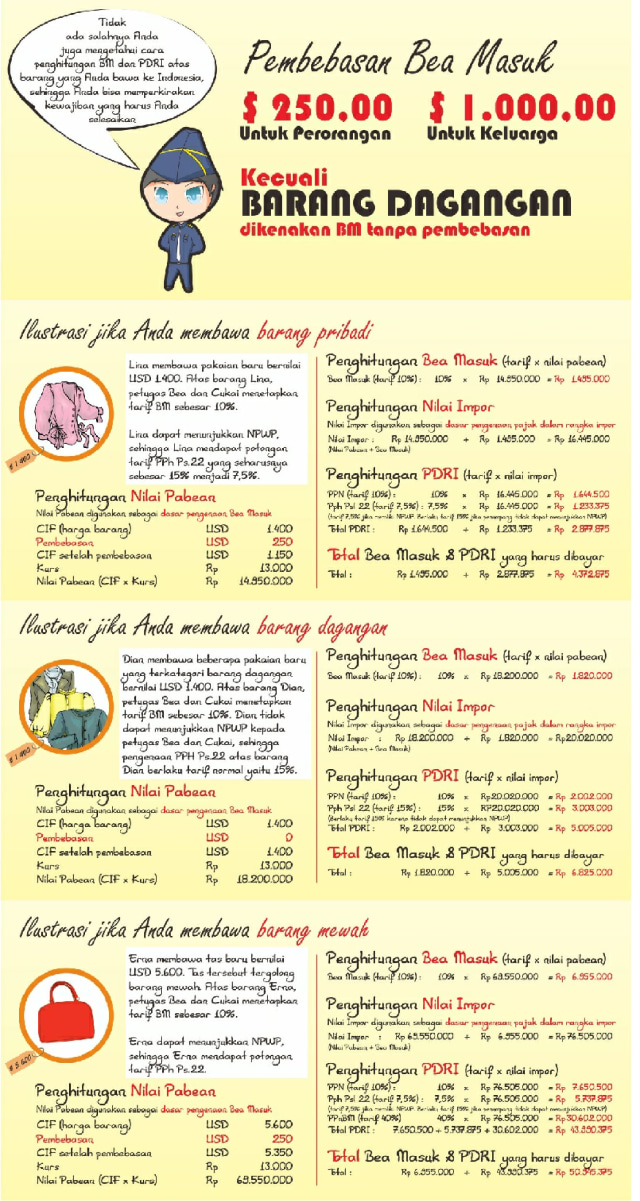 Tidak
ada salahnya Anda
juga mengetahui cara
penghitungan BM dan PDRI atas
barang yang Anda bawa ke Indonesia,
sehingga Anda bisa memperkirakan
kewajiban yang harus Anda
selesaikan
Pembebasan Bea Masuk
$ 250,00 $ 1.000,00
Untuk Perorangan Untuk Keluarga
Kecuali
BARANG DAGANGAN
dikenakan BM tanpa pembebasan
Ilustrasi jika Anda membawa barang pribadi
$ 1.400
Lina membawa pakaian baru bernilai
USD 1.400. Atas barang Lina,
petugas Bea dan Cukai menetapkan
tarif BM sebesar 10%.
Lina dapat menunjukkan NPWP,
sehingga Lina mendapat potongan
tarif PPh Ps.22 yang seharusnya
sebesar 15% menjadi 7,5%.
Penghitungan Nilai Pabean
Nilai Pabean digunakan sebagai dasar pengenaan Bea Masuk
CIF (harga barang) USD 1.400
Pembebasan USD 250
CIF setelah pembebasan USD 1.150
Kurs Rp 13.000
Nilai Pabean (CIF x Kurs) Rp 14.950.000
Penghitungan Bea Masuk (tarif x nilai pabean)
Bea Masuk (tarif 10%) : 10% x Rp 14.950.000 = Rp 1.495.000
Penghitungan Nilai Impor
Nilai Impor digunakan sebagai dasar pengenaan pajak dalam rangka impor
Nilai Impor : Rp 14.950.000 + Rp 1.495.000 = Rp 16.445.000
(Nilai Pabean + Bea Masuk)
Penghitungan PDRI (tarif x nilai impor)
PPN (tarif 10%) : 10% x Rp 16.445.000 = Rp 1.644.500
Pph Psl 22 (tarif 7,5%) : 7,5% x Rp 16.445.000 = Rp 1.233.375
(tarif 7,5% jika memiliki NPWP. Berlaku tarif 15% jika penumpang tidak dapat menunjukkan NPWP)
Total PDRI : Rp 1.644.500 + Rp 1.233.375 = Rp 2.877.875
Total Bea Masuk & PDRI yang harus dibayar
Total : Rp 1.495.000 + Rp 2.877.875 = Rp 4.372.875
Ilustrasi jika Anda membawa barang dagangan
$ 1.400
Dian membawa beberapa pakaian baru
yang terkategori barang dagangan
bernilai USD 1.400. Atas barang Dian,
petugas Bea dan Cukai menetapkan
tarif BM sebesar 10%. Dian tidak
dapat menunjukkan NPWP kepada
petugas Bea dan Cukai, sehingga
pengenaan PPH Ps.22 atas barang
Dian berlaku tarif normal yaitu 15%.
Penghitungan Nilai Pabean
Nilai Pabean digunakan sebagai dasar pengenaan Bea Masuk
CIF (harga barang) USD 1.400
Pembebasan USD 0
CIF setelah pembebasan USD 1.400
Kurs Rp 13.000
Nilai Pabean (CIF x Kurs) Rp 18.200.000
Penghitungan Bea Masuk (tarif x nilai pabean)
Bea Masuk (tarif 10%) : 10% x Rp 18.200.000 = Rp 1.820.000
Penghitungan Nilai Impor
Nilai Impor digunakan sebagai dasar pengenaan pajak dalam rangka impor
Nilai Impor : Rp 18.200.000 + Rp 1.820.000 = Rp20.020.000
(Nilai Pabean + Bea Masuk)
Penghitungan PDRI (tarif x nilai impor)
PPN (tarif 10%) : 10% x Rp20.020.000 = Rp 2.002.000
Pph Psl 22 (tarif 15%) : 15% x RP20.020.000 = Rp 3.003.000
(Berlaku tarif 15% karena tidak dapat menunjukkan NPWP)
Total PDRI : Rp 2.002.000 + Rp 3.003.000 = Rp 5.005.000
Total Bea Masuk & PDRI yang harus dibayar
Total : Rp 1.820.000 + Rp 5.005.000 = Rp 6.825.000
Ilustrasi jika Anda membawa barang mewah
$ 5.600
Erna membawa tas baru bernilai
USD 5.600. Tas tersebut tergolong
barang mewah. Atas barang Erna,
petugas Bea dan Cukai menetapkan
tarif BM sebesar 10%.
Erna dapat menunjukkan NPWP,
sehingga Erna mendapat potongan
tarif PPh Ps.22.
Penghitungan Nilai Pabean
Nilai Pabean digunakan sebagai dasar pengenaan Bea Masuk
CIF (harga barang) USD 5.600
Pembebasan USD 250
CIF setelah pembebasan USD 5.350
Kurs Rp 13.000
Nilai Pabean (CIF x Kurs) Rp 69.550.000
Penghitungan Bea Masuk (tarif x nilai pabean)
Bea Masuk (tarif 10%) : 10% x Rp 69.550.000 = Rp 6.955.000
Penghitungan Nilai Impor
Nilai Impor digunakan sebagai dasar pengenaan pajak dalam rangka impor
Nilai Impor : Rp 69.550.000 + Rp 6.955.000 = Rp 76.505.000
(Nilai Pabean + Bea Masuk)
Penghitungan PDRI (tarif x nilai impor)
PPN (tarif 10%) : 10% x Rp 76.505.000 = Rp 7.650.500
Pph Psl 22 (tarif 7,5%) : 7,5% x Rp 76.505.000 = Rp 5.737.875
(tarif 7,5% jika memiliki NPWP. Berlaku tarif 15% jika penumpang tidak dapat menunjukkan NPWP)
PPnBM (tarif 40%) 40% x Rp 76.505.000 = Rp 30.602.000
Total PDRI : 7.650.500 + 5.737.875 + 30.602.000 = Rp 43.990.375
Total Bea Masuk & PDRI yang harus dibayar
Total : Rp 6.955.000 + Rp 43.990.375 = Rp 50.945.375